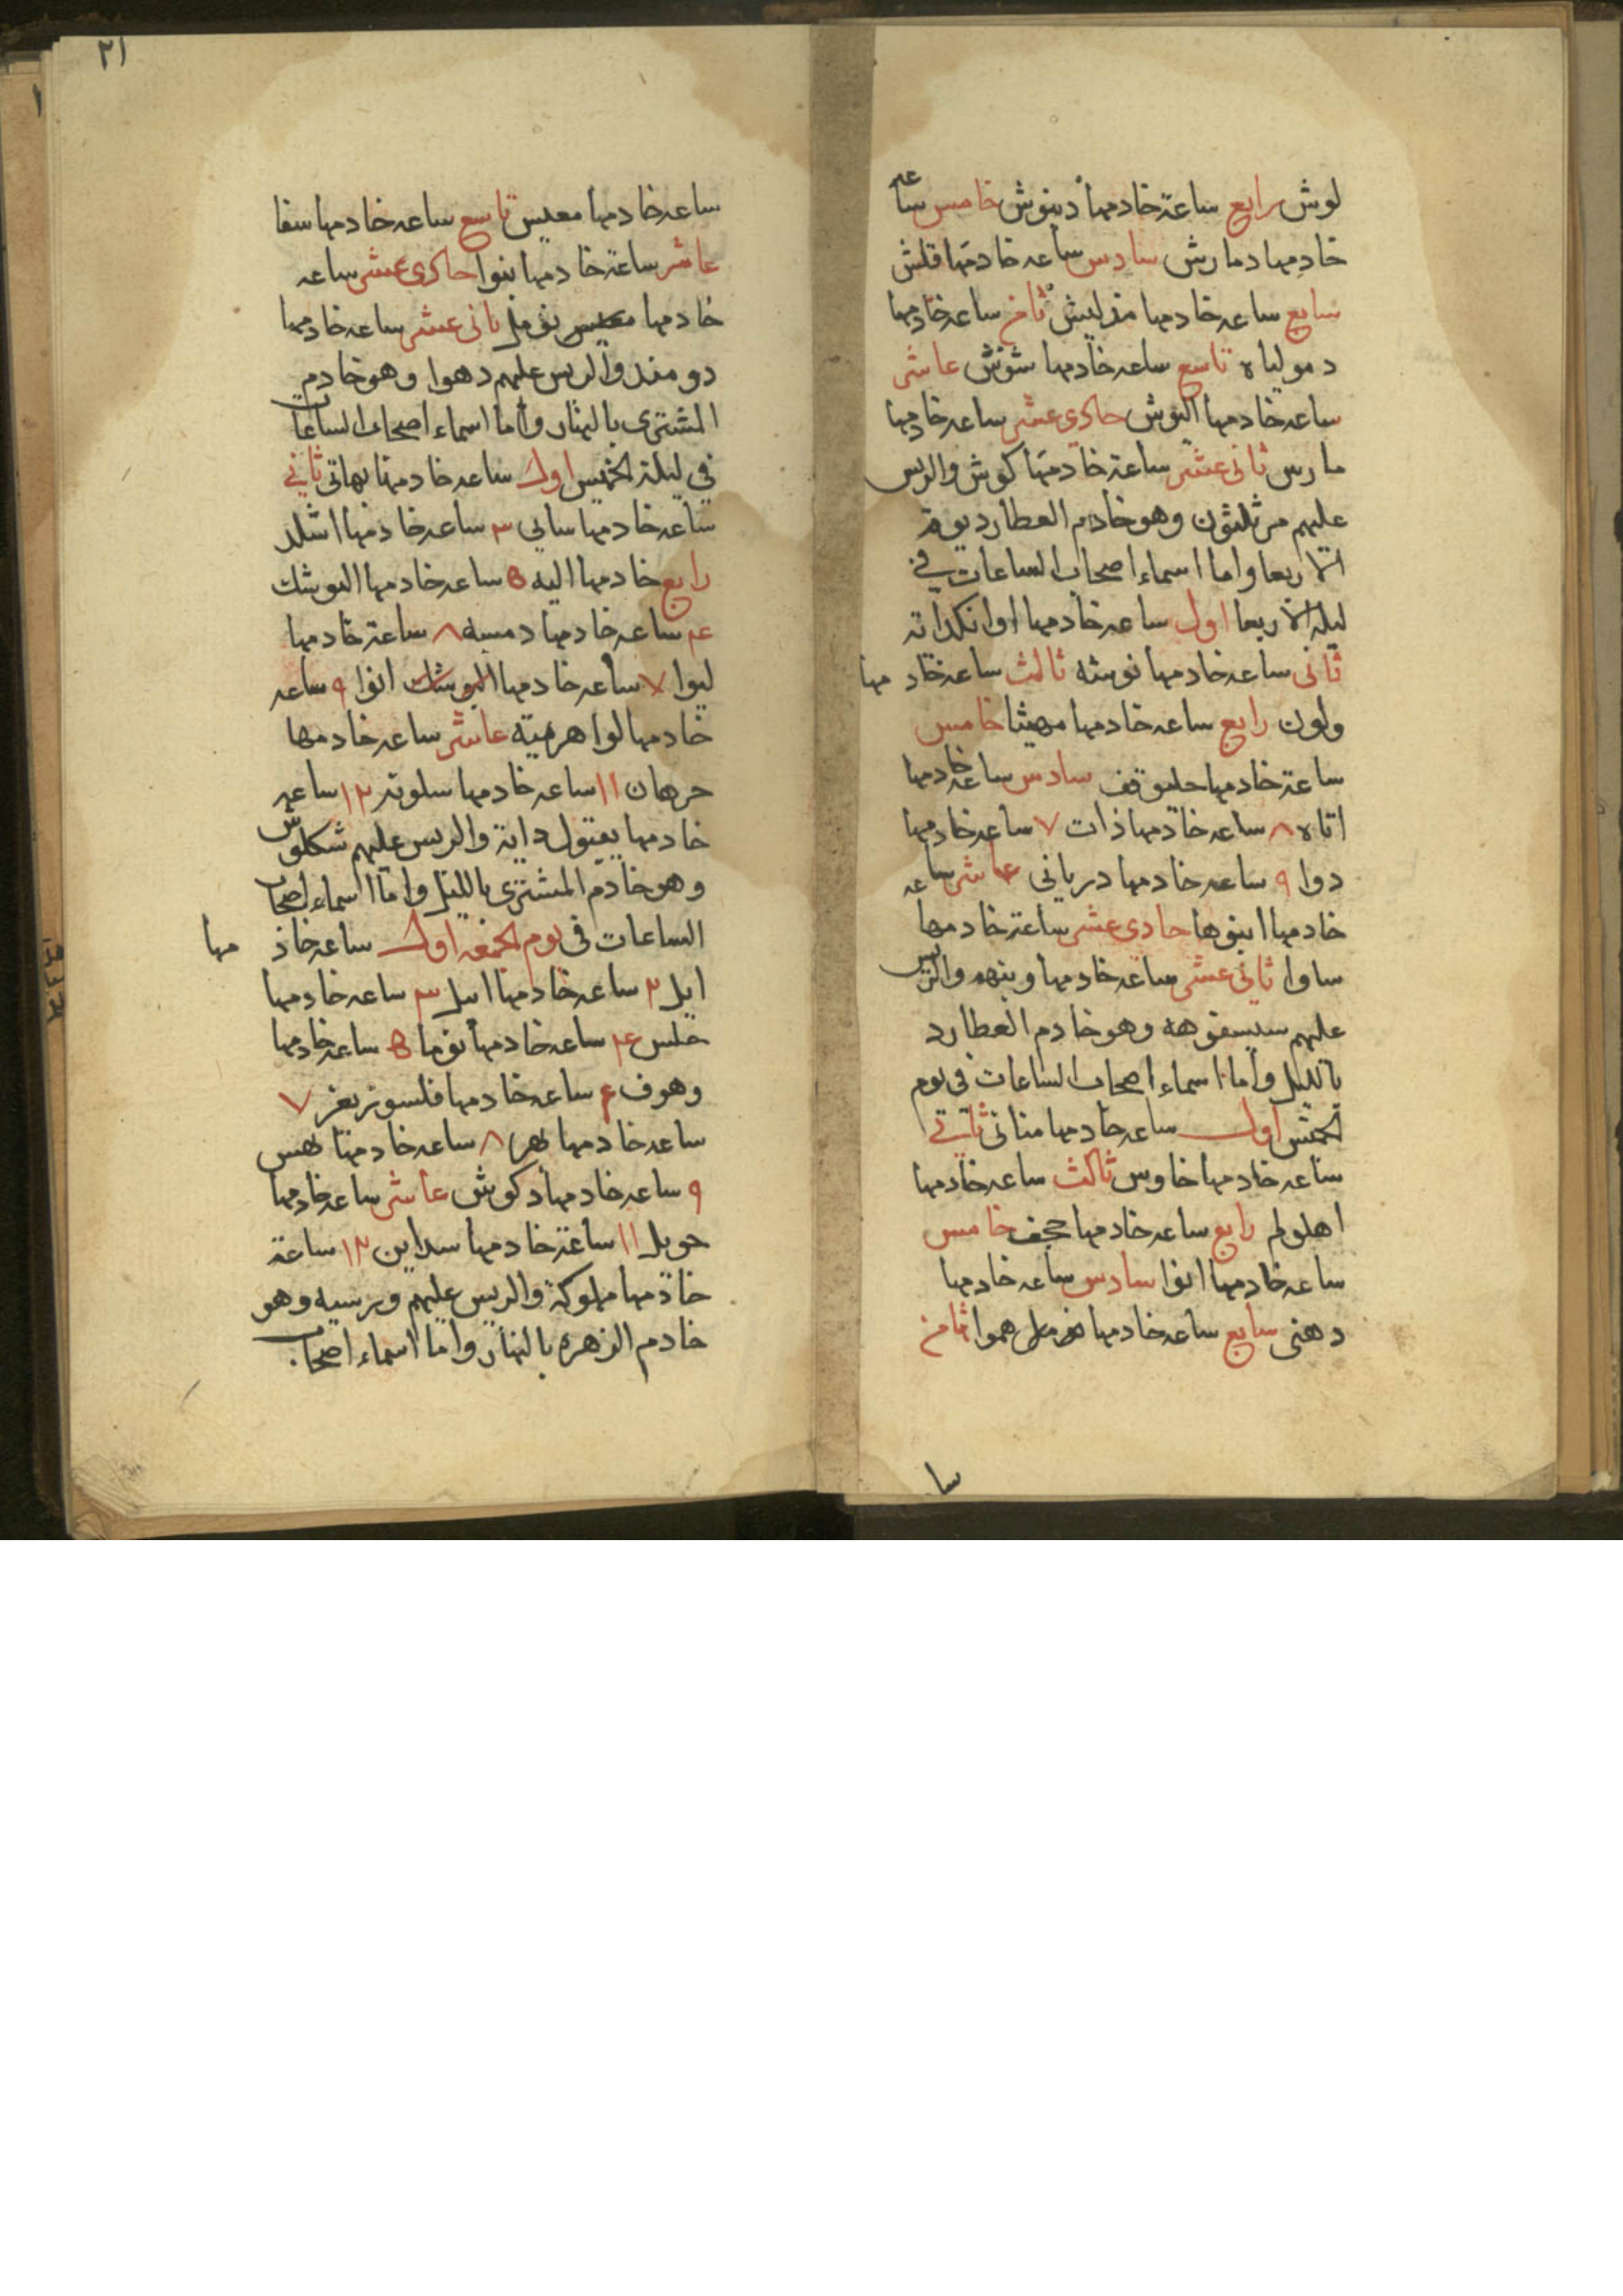 لوش رابع ساعة خادمها دينوش خامس ساعه
خادمها دمارش سادس ساعه خادمها قلش
سابع ساعه خادمها مذليش ثامن ساعه خادمها
دمولياه تاسع ساعه خادمها شونش عاشر
ساعه خادمها اليوش حادى عشر ساعه خادمها
مارس ثانى عشر ساعة خادمها كوش والريس
عليهم مرثليثون وهو خادم العطارد يوم
الاربعا واما اسماء اصحاب الساعات في
ليلة الاربعا اول ساعه خادمها اوانكداته
ثانى ساعه خادمها نوشه ثالث ساعه خادمها
ولون رابع ساعه خادمها مهيثا خامس
ساعة خادمها حليوقف سادس ساعه خادمها
اتاه ٨ ساعه خادمها ذات ٧ ساعه خادمها
دوا ٩ ساعه خادمها دريانى عاشر ساعه
خادمها ابنوها حادى عشر ساعة خادمها
ساوا ثانى عشر ساعه خادمها وينهه والريس
عليهم سيسفوهه وهو خادم العطارد
بالليل واما اسماء اصحاب الساعات فى يوم
الخميس اول ساعه خادمها منانى ثانى
ساعه خادمها خاوس ثالث ساعه خادمها
اهلولم رابع ساعه خادمها حجف خامس
ساعه خادمها انوا سادس ساعه خادمها
دهنى سابع ساعه خادمها هموا ثامن
سا
٢١
ساعه خادمها معيس تاسع ساعه خادمها سفا
عاشر ساعة خادمها بنوا حادى عشر ساعه
خادمها نومل ثانى عشر ساعه خادمها
دومند والريس عليهم دهوا وهو خادم
المشترى بالنهار واما اسماء اصحاب الساعات
في ليلة الخميس اول ساعه خادمها بهاتى ثاني
ساعه خادمها ساني ٣ ساعه خادمها اشلد
رابع خادمها اليه ٥ ساعه خادمها اليوشك
ساعه خادمها دمسه ٨ ساعة خادمها
ليوا ٧ ساعه خادمها انوا ٩ ساعه
خادمها لوا هرميه عاشر ساعه خادمها
حرهان ١١ ساعه خادمها سلوته ١٢ ساعه
خادمها يعتول داية والريس عليهم شكلوش
وهو خادم المشترى بالليل واما اسماء اصحاب
الساعات فى يوم الجمعه اول ساعه خادمها
ايل ٢ ساعه خادمها اسل ٣ ساعه خادمها
حلس ٤ ساعه خادمها نوما ٥ ساعه خادمها
وهوف ٦ ساعه خادمها فلسوز بغز ٧
ساعه خادمها لهر ٨ ساعه خادمها لهس
٩ ساعه خادمها دكوش عاشر ساعه خادمها
حويل ١١ ساعة خادمها سداين ١٢ ساعة
خادمها مهلوكة والريس عليهم وبرسيه وهو
خادم الزهره بالنهار واما اسماء اصحاب